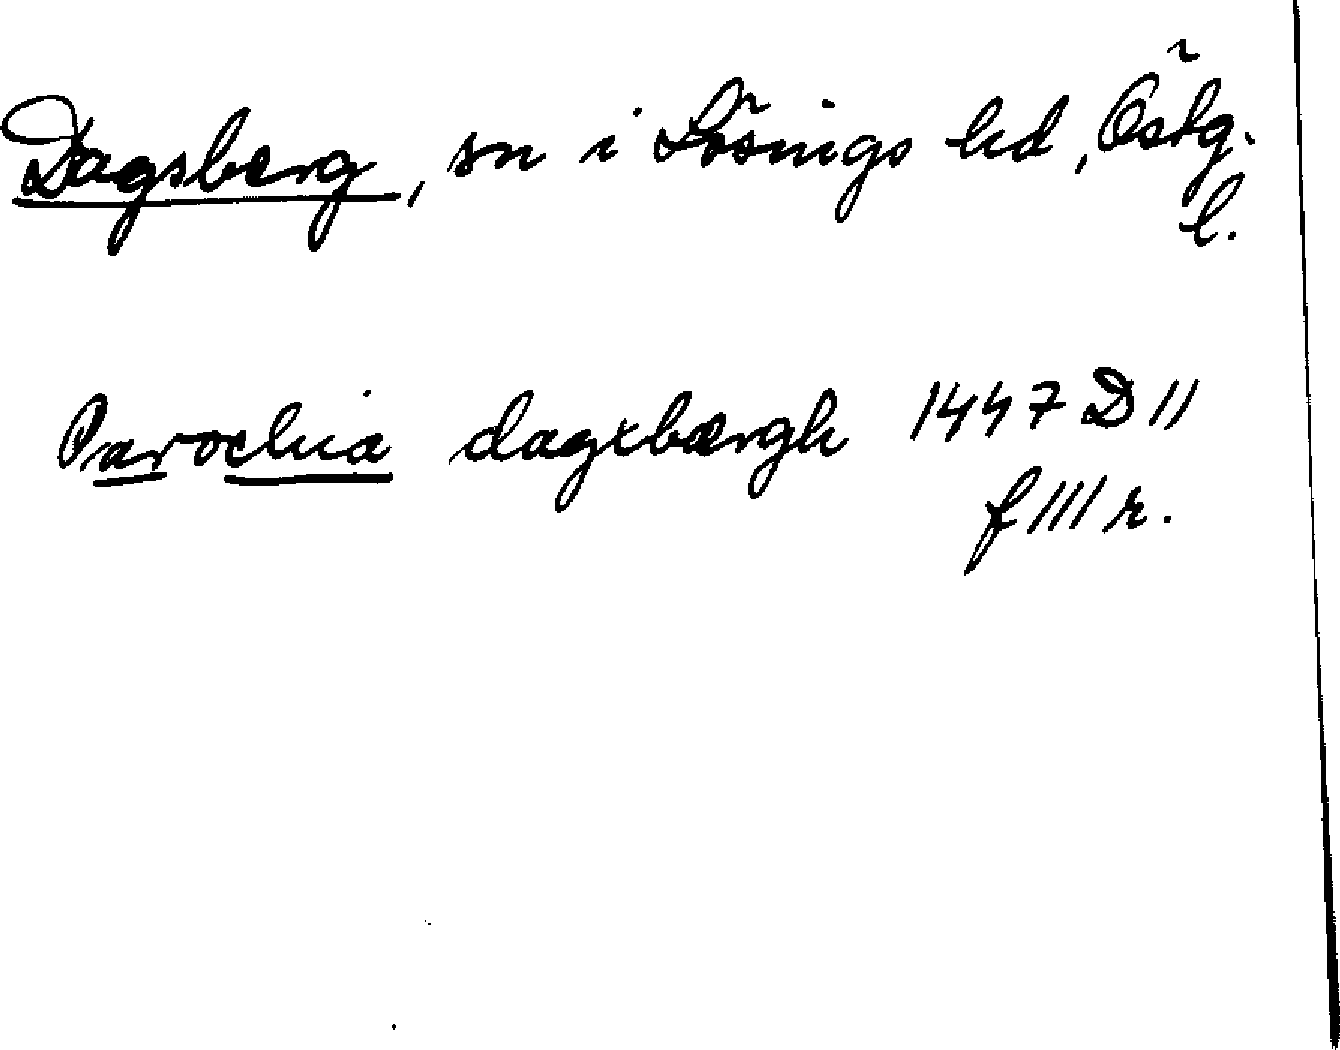 Dagsberg, sn i Lösings hd, Östg.
l.
Parochia dagxbærgh 1447 D 11
f 111 r.